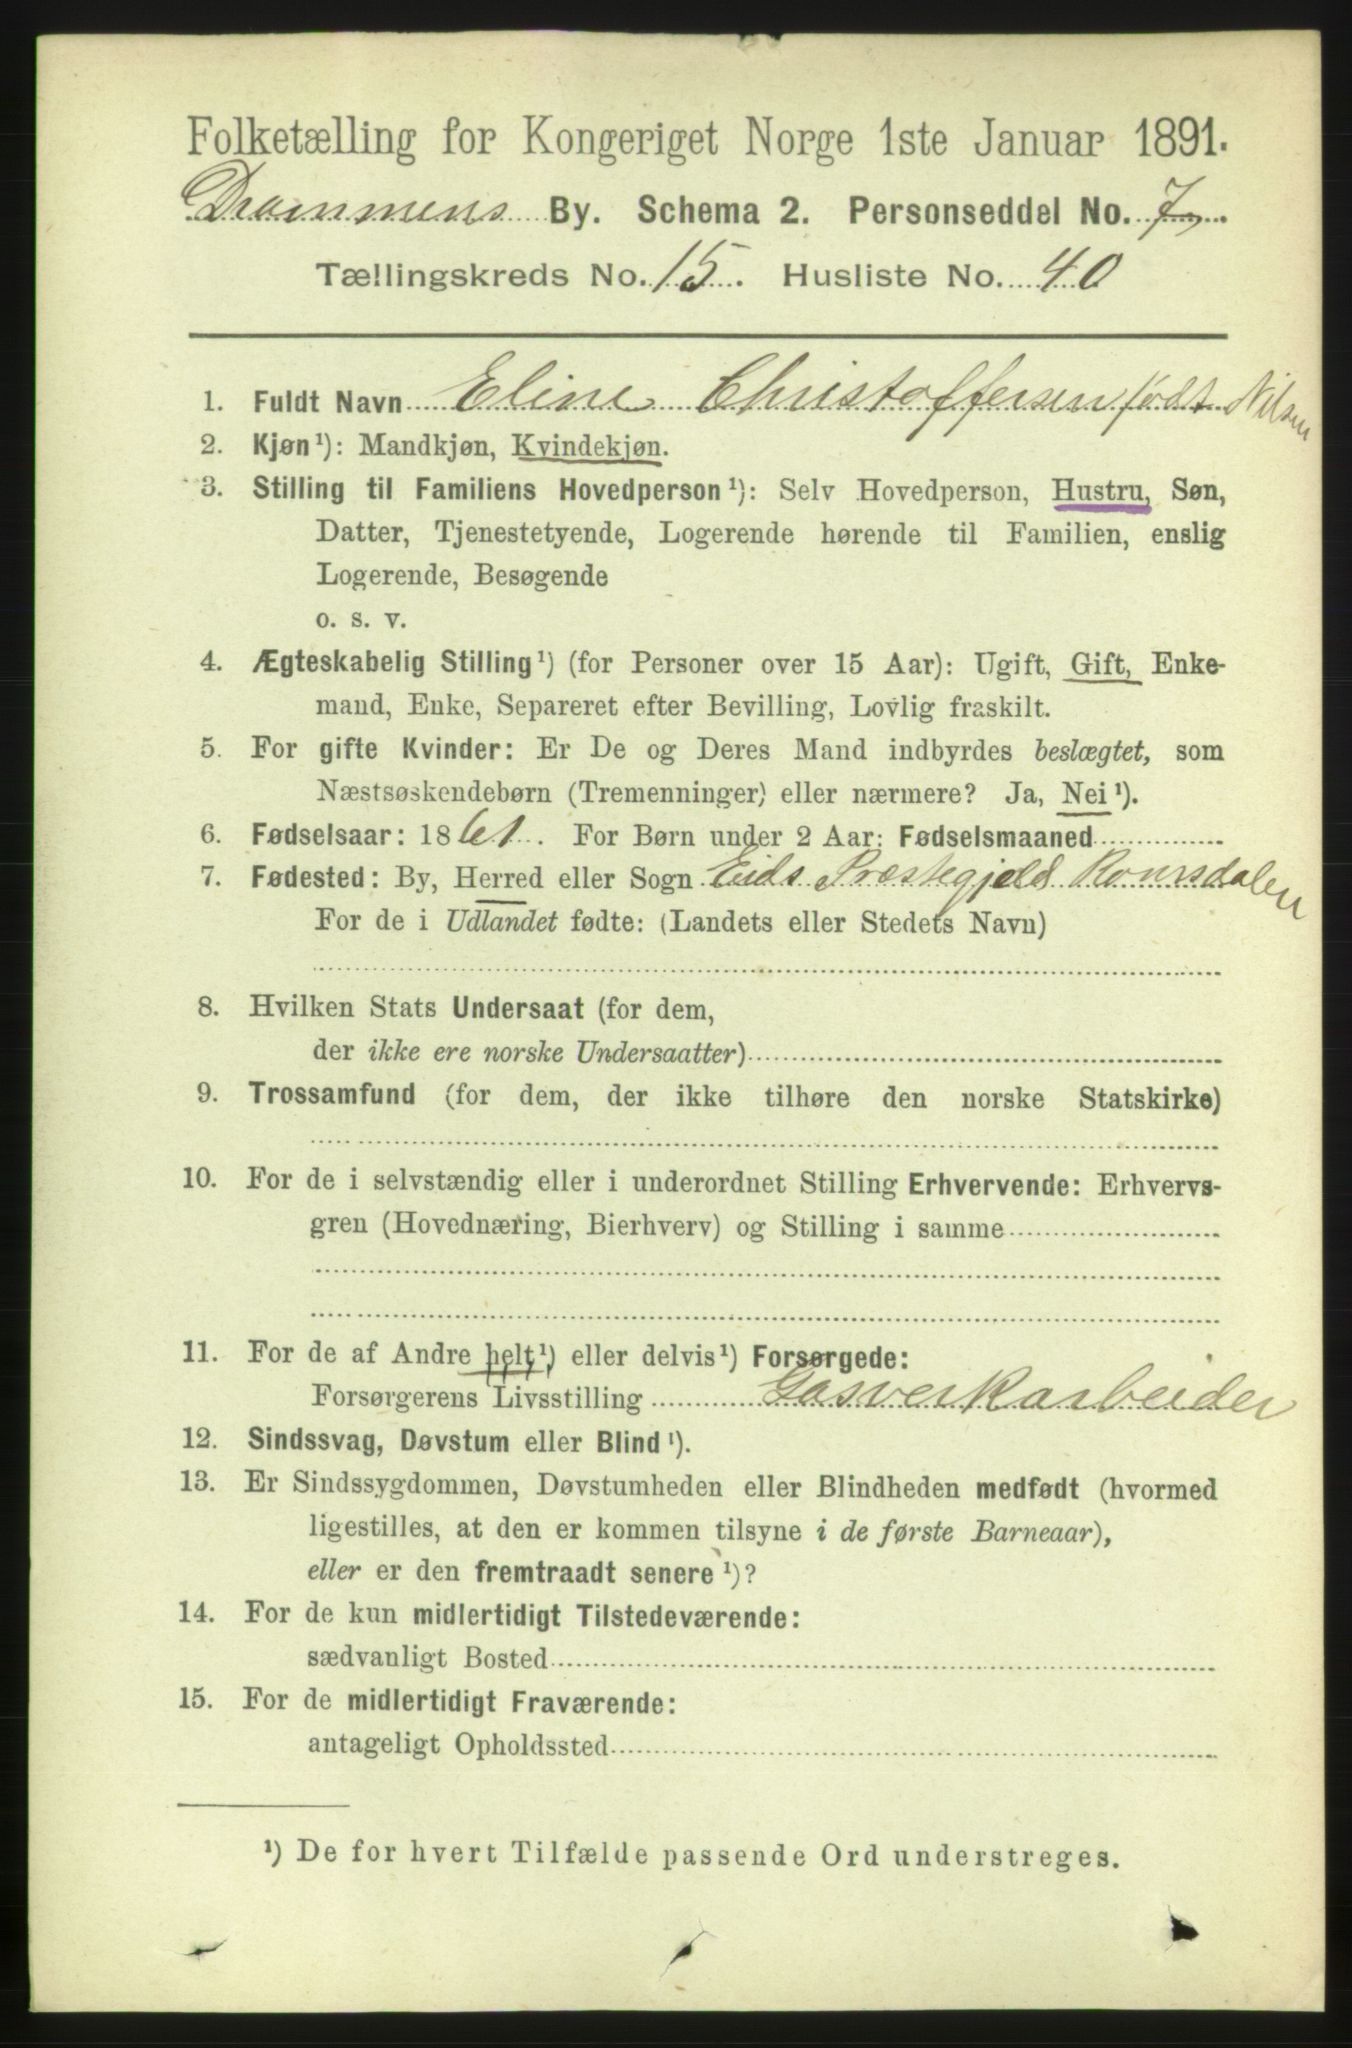 Folketælling for Kongeriget Norge 1ste Januar 1891.
Drammens By. Schema 2. Personseddel No. 7
Tællingskreds No. 15. Husliste No. 40
1. Fuldt Navn Eline Christoffersen født Nilsen
2. Kjøn¹): Mandkjøn, Kvindekjøn.
3. Stilling til Familiens Hovedperson¹): Selv Hovedperson, Hustru, Søn,
Datter, Tjenestetyende, Logerende hørende til Familien, enslig
Logerende, Besøgende
o. s. v.
4. Ægteskabelig Stilling¹) (for Personer over 15 Aar): Ugift, Gift, Enke-
mand, Enke, Separeret efter Bevilling, Lovlig fraskilt.
5. For gifte Kvinder: Er De og Deres Mand indbyrdes beslægtet, som
Næstsøskendebørn (Tremenninger) eller nærmere? Ja, Nei¹).
6. Fødselsaar: 1861. For Børn under 2 Aar: Fødselsmaaned
7. Fødested: By, Herred eller Sogn Eids Præstegjeld Romsdalen
For de i Udlandet fødte: (Landets eller Stedets Navn)
8. Hvilken Stats Undersaat (for dem,
der ikke ere norske Undersaatter)
9. Trossamfund (for dem, der ikke tilhøre den norske Statskirke)
10. For de i selvstændig eller i underordnet Stilling Erhvervende: Erhvervs-
gren (Hovednæring, Bierhverv) og Stilling i samme
11. For de af Andre helt¹) eller delvis¹) Forsørgede:
Forsørgerens Livsstilling Gasverkarbeider
12. Sindssvag, Døvstum eller Blind¹).
13. Er Sindssygdommen, Døvstumheden eller Blindheden medfødt (hvormed
ligestilles, at den er kommen tilsyne i de første Barneaar),
eller er den fremtraadt senere¹)?
14. For de kun midlertidigt Tilstedeværende:
sædvanligt Bosted
15. For de midlertidigt Fraværende:
antageligt Opholdssted
¹) De for hvert Tilfælde passende Ord understreges.